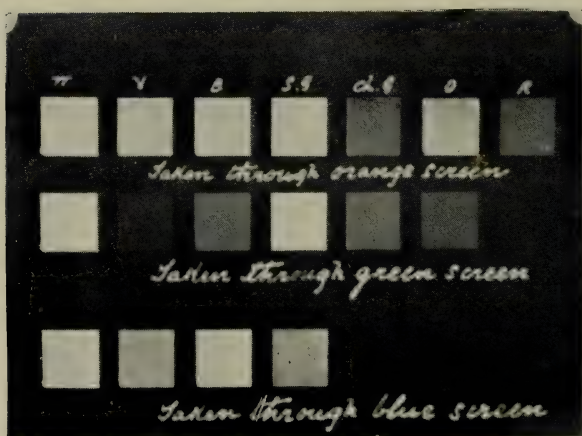 W Y B S.G d.G O R
Taken through orange screen
Taken through green screen
Taken through blue screen